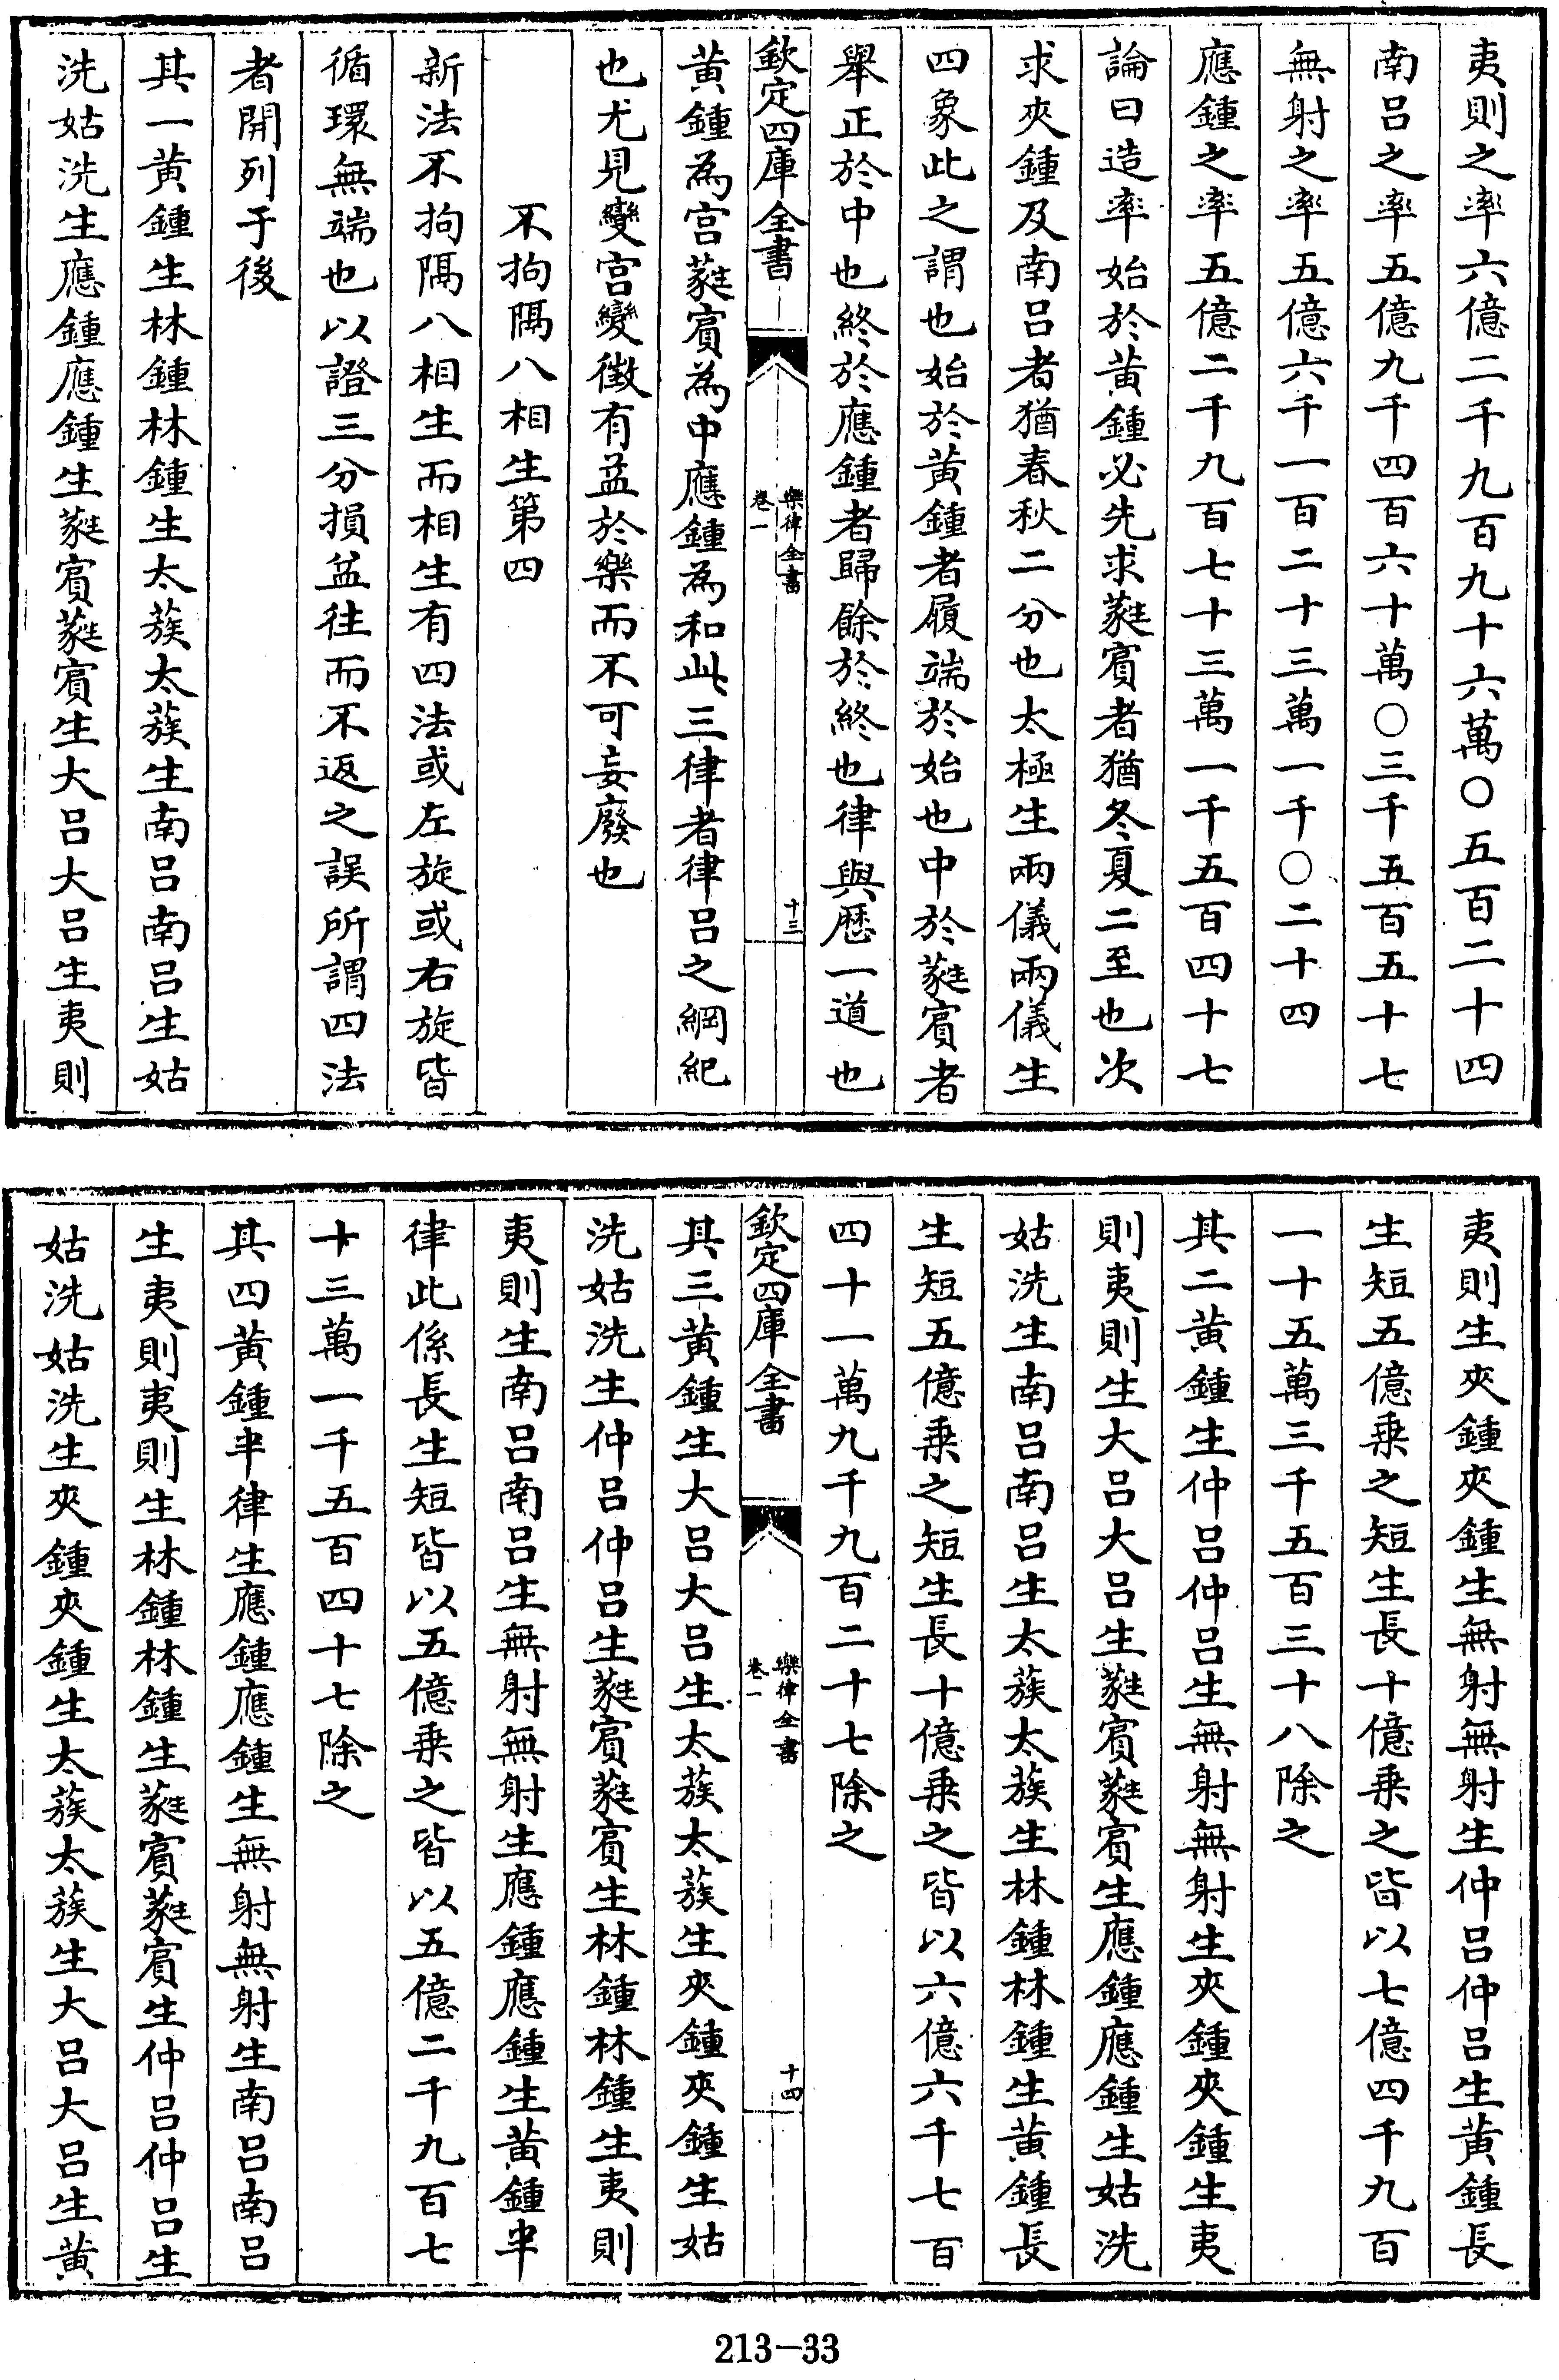 夷則之率六億二千九百九十六萬〇五百二十四
南呂之率五億九千四百六十萬〇三千五百五十七
無射之率五億六千一百二十三萬一千〇二十四
應鍾之率五億二千九百七十三萬一千五百四十七
論曰造率始於黃鍾必先求蕤賓者猶冬夏二至也次
求夾鍾及南呂者猶春秋二分也太極生兩儀兩儀生
四象此之謂也始於黃鍾者履端於始也中於蕤賓者
舉正於中也終於應鍾者歸餘於終也律與歷一道也
欽定四庫全書
樂律全書
卷一
十三
黃鍾為宮蕤賓為中應鍾為和此三律者律呂之綱紀
也尤見變宮變徵有益於樂而不可妄廢也
不拘隔八相生第四
新法不拘隔八相生而相生有四法或左旋或右旋皆
循環無端也以證三分損益往而不返之誤所謂四法
者開列于後
其一黃鍾生林鍾林鍾生太蔟太蔟生南呂南呂生姑
洗姑洗生應鍾應鍾生蕤賓蕤賓生大呂大呂生夷則
夷則生夾鍾夾鍾生無射無射生仲呂仲呂生黃鍾長
生短五億乗之短生長十億乗之皆以七億四千九百
一十五萬三千五百三十八除之
其二黃鍾生仲呂仲呂生無射無射生夾鍾夾鍾生夷
則夷則生大呂大呂生蕤賓蕤賓生應鍾應鍾生姑洗
姑洗生南呂南呂生太蔟太蔟生林鍾林鍾生黃鍾長
生短五億乗之短生長十億乗之皆以六億六千七百
四十一萬九千九百二十七除之
欽定四庫全書
樂律全書
卷一
十四
其三黃鍾生大呂大呂生太蔟太蔟生夾鍾夾鍾生姑
洗姑洗生仲呂仲呂生蕤賓蕤賓生林鍾林鍾生夷則
夷則生南呂南呂生無射無射生應鍾應鍾生黃鍾半
律此係長生短皆以五億乗之皆以五億二千九百七
十三萬一千五百四十七除之
其四黃鍾半律生應鍾應鍾生無射無射生南呂南呂
生夷則夷則生林鍾林鍾生蕤賓蕤賓生仲呂仲呂生
姑洗姑洗生夾鍾夾鍾生太蔟太蔟生大呂大呂生黃
213-33